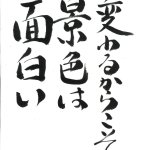 変わるからこそ
景色は
面白い